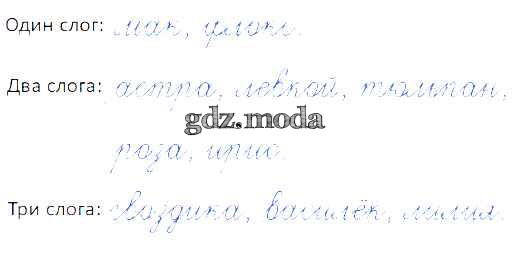 Один слог: мак, флокс.
Два слога: астра, левкой, тюльпан,
gdz.moda
роза, ирис.
Три слога: гвоздика, василёк, лилия.